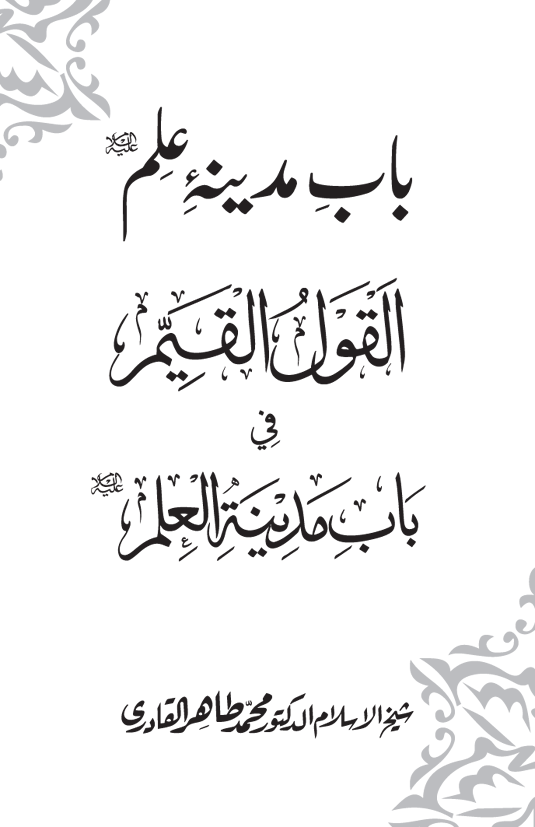 بابِ مدینۂِ عِلم علیہ السلام
اَلْقَوْلُ الْقَيِّم
فِي
بَابِ مَدِيْنَةِ الْعِلْمِ علیہ السلام
شیخ الاسلام الدکتور محمّد طاہر القادری